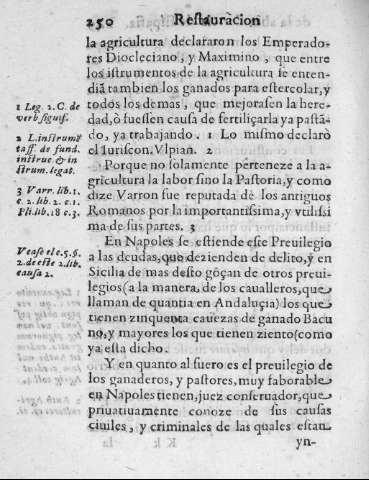 250 Restauracion
la agricultura declararon los Emperado-
res Diocleciano, y Maximino, que entre
los istrumentos de la agricultura se enten-
diã tambien los ganados para estercolar, y
todos los demas, que mejorasen la here-
dad, ò fuessen causa de fertiliçarla ya pastã-
do, ya trabajando. 1 Lo mismo declarò
el Iuriscon. Vlpian. 2
Porque no solamente perteneze a la a-
gricultura la labor sino la Pastoria, y como
dize Varron fue reputada de los antiguos
Romanos por la importantissima, y vtilissi
ma de sus partes. 3
En Napoles se estiende este Preuilegio
a las deudas, que dezienden de delito, y en
Sicilia de mas desto goçan de otros preui-
legios (a la manera, de los caualleros, que
llaman de quantia en Andaluçia) los que
tienen zinquenta cauezas de ganado Bacu
no, y mayores los que tienen ziento (como
ya esta dicho.
Y en quanto al fuero es el preuilegio de
los ganaderos, y pastores, muy faborable
en Napoles tienen, juez conseruador, que
priuatiuamente conoze de sus causas
ciuiles, y criminales de las quales estan
yn-
1 Leg. 2. C. de
verb. signif.
2 L. instrumẽ
taff. de fund.
instruc & in
strum. legat.
3 Varr. lib. 1.
c. 2. lib. 2. c. 1.
Pli. lib. 18 c. 3.
Vease el c. 5. §.
2. de este 2. lib.
causa 2.